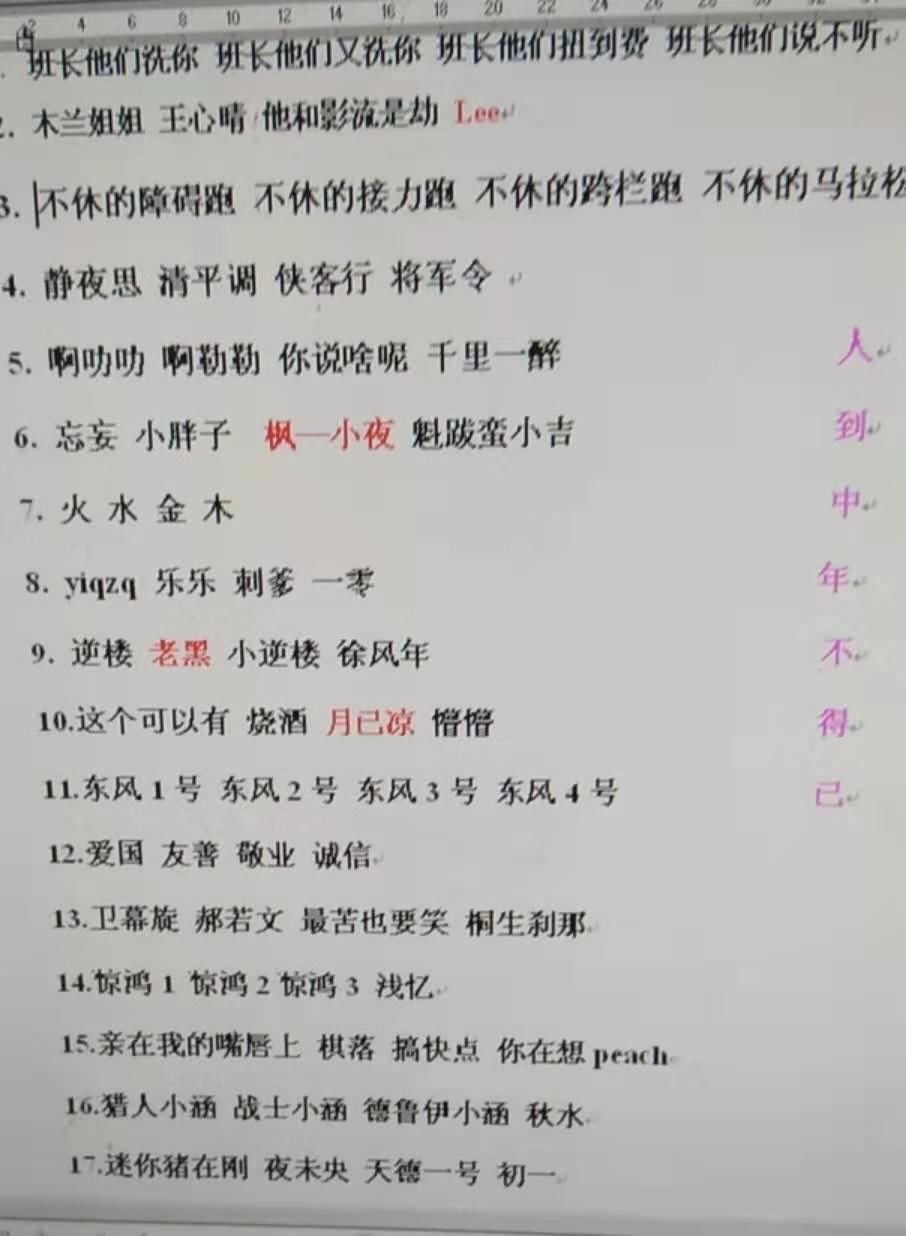 2 4 6 8 10 12 14 16 18 20 22 24 26
班长他们洗你 班长他们又洗你 班长他们扭到费 班长他们说不听
2. 木兰姐姐 王心晴 他和影流是劫 Lee
3. 不休的障碍跑 不休的接力跑 不休的跨栏跑 不休的马拉松
4. 静夜思 清平调 侠客行 将军令
5. 啊叻叻 啊勒勒 你说啥呢 千里一醉 人
6. 忘妄 小胖子 枫—小夜 魁跋蛮小吉 到
7. 火 水 金 木 中
8. yiqzq 乐乐 刺爹 一零 年
9. 逆楼 老黑 小逆楼 徐风年 不
10.这个可以有 烧酒 月已凉 懵懵 得
11.东风 1 号 东风 2 号 东风 3 号 东风 4 号 已
12.爱国 友善 敬业 诚信
13.卫幕旋 郝若文 最苦也要笑 桐生刹那
14.惊鸿 1 惊鸿 2 惊鸿 3 浅忆
15.亲在我的嘴唇上 棋落 搞快点 你在想 peach
16.猎人小涵 战士小涵 德鲁伊小涵 秋水
17.迷你猪在刚 夜未央 天德一号 初一